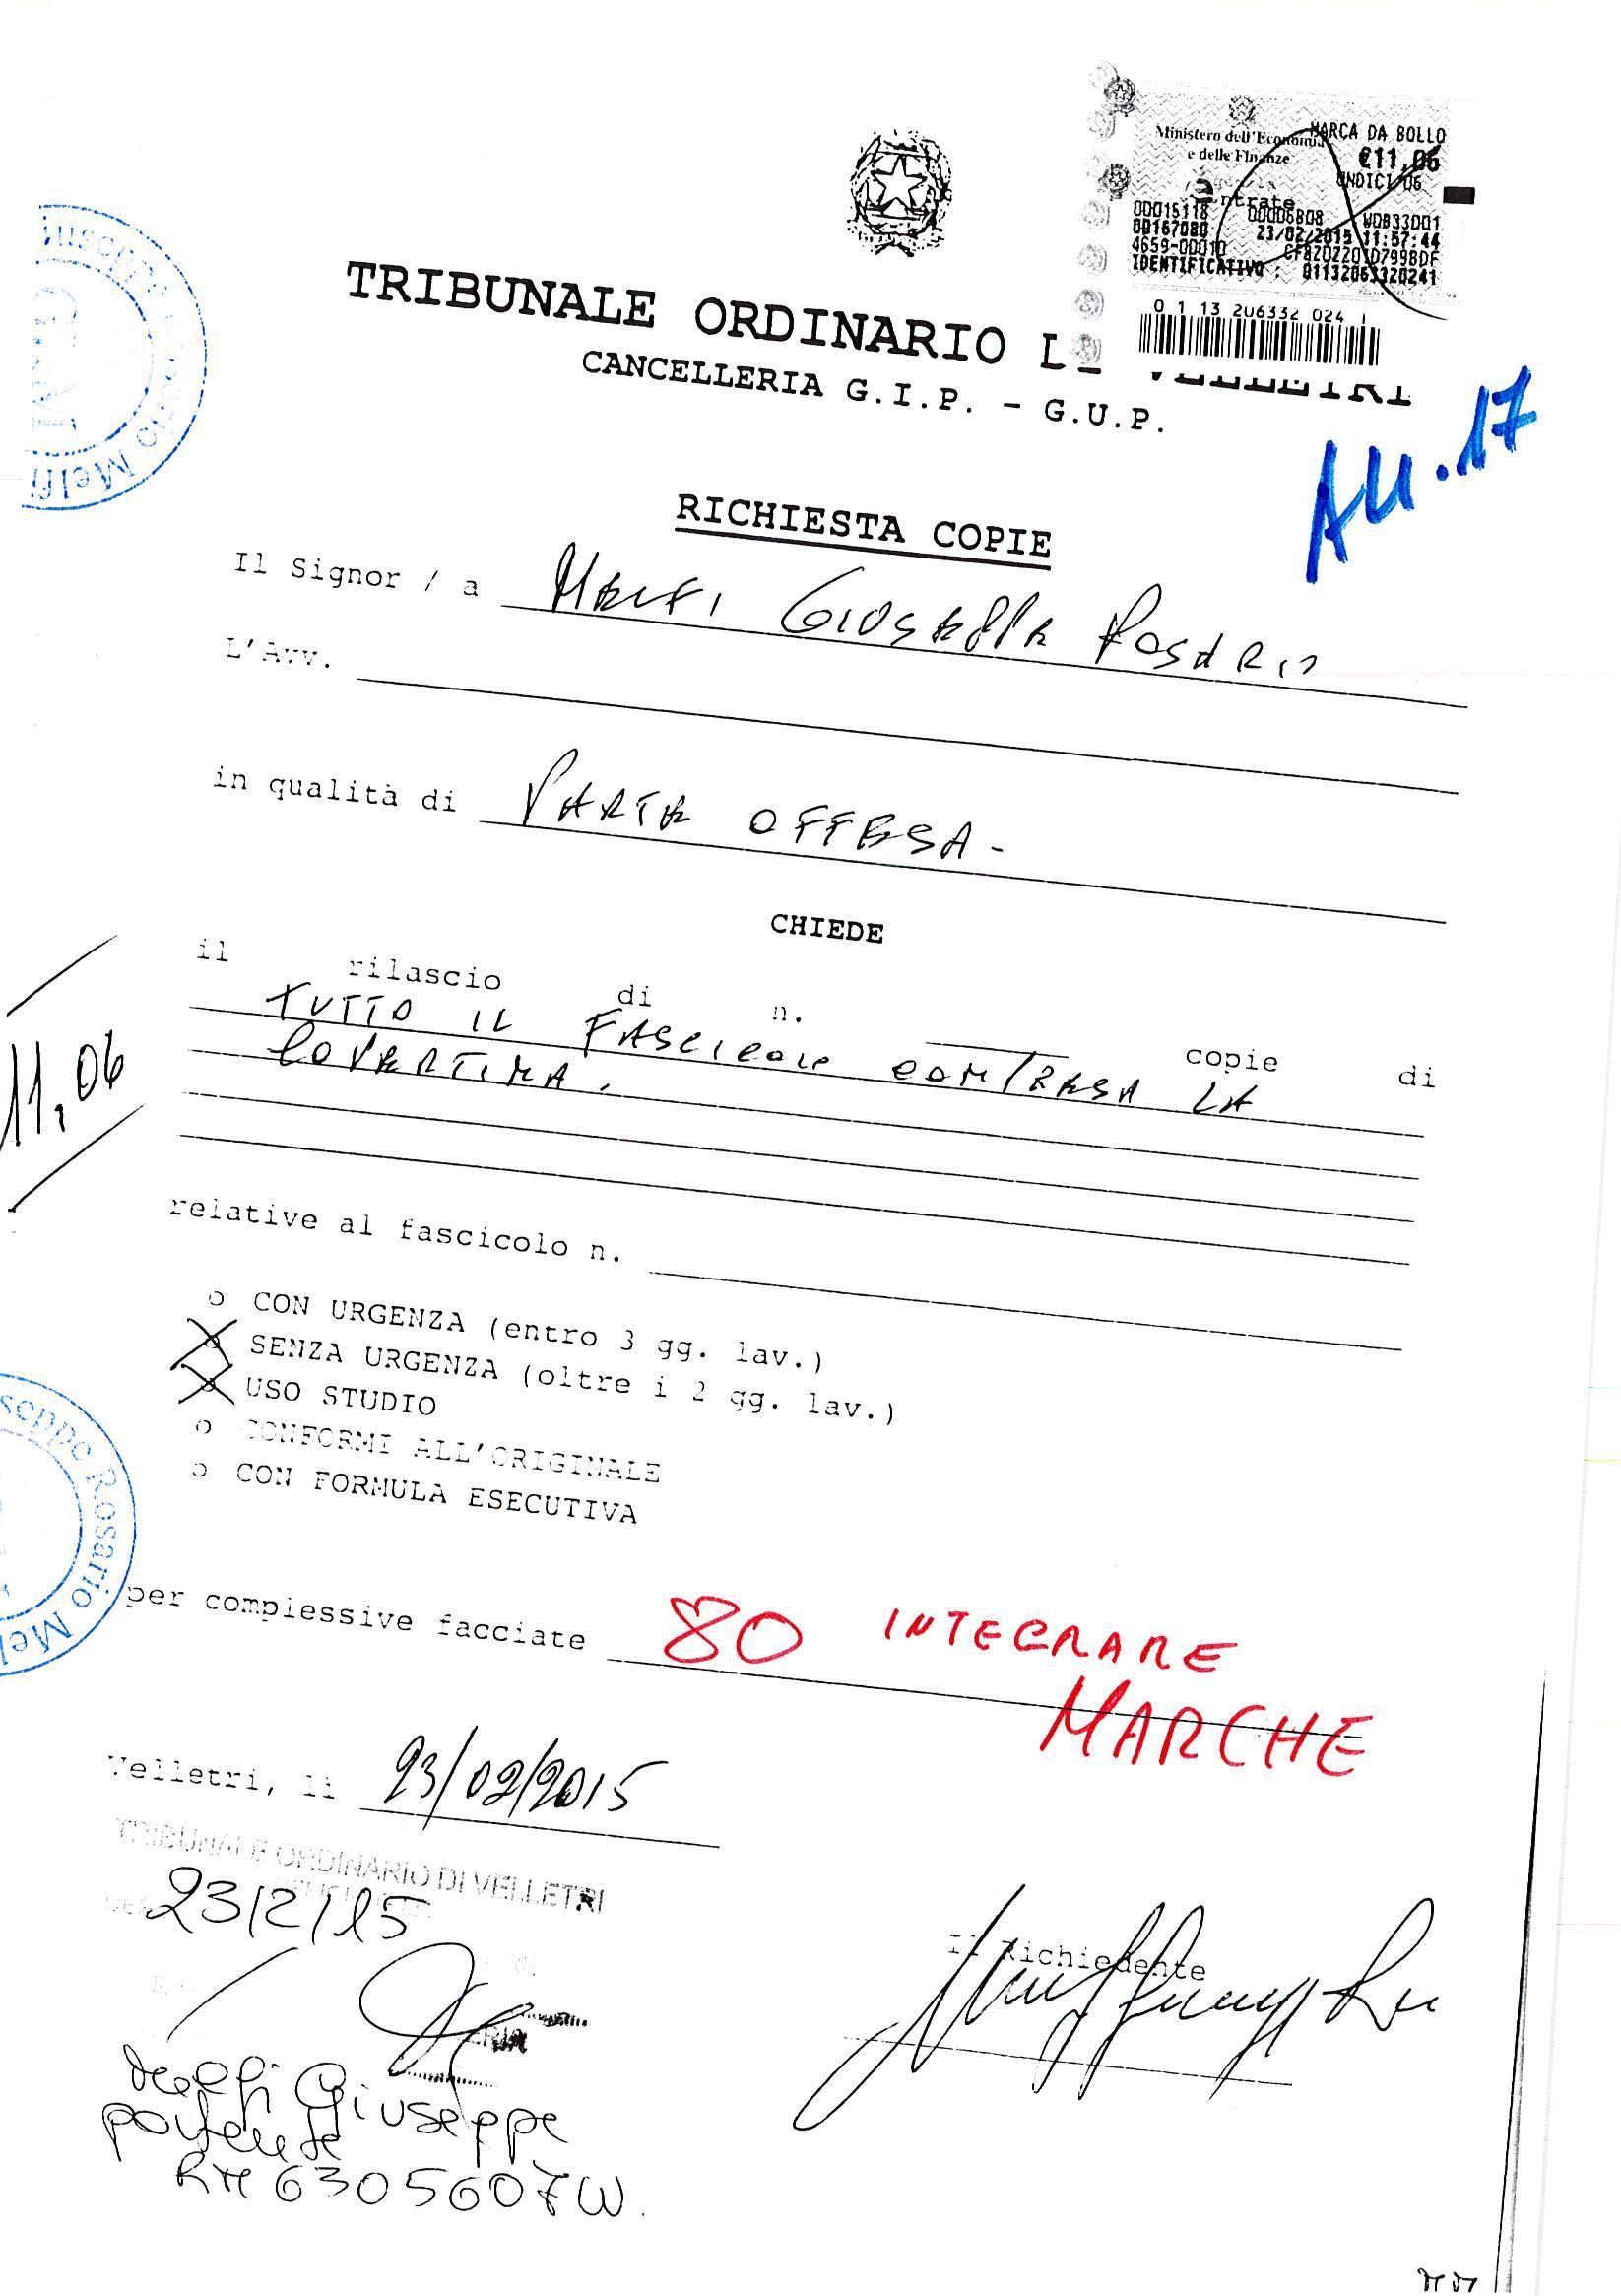 Ministero dell'Economia
e delle Finanze
MARCA DA BOLLO
€11,06
UNDICI/06
entrate
00015118 00006808 W0B33001
00167080 23/02/2015 11:57:44
4659-00010
IDENTIFICATIVO : 01132063320241
0 1 13 206332 024 1
TRIBUNALE ORDINARIO DI VELLETRI
CANCELLERIA G.I.P. - G.U.P.
All. 17
Giuseppe Rosario Melfi
G.M
RICHIESTA COPIE
Il Signor / a MELFI GIUSEPPE ROSARIO
L'Avv.
in qualità di PARTE OFFESA -
CHIEDE
il rilascio di n. copie di
TUTTO IL FASCICOLO COMPRESA LA
COPERTINA.
11,06
relative al fascicolo n.
o CON URGENZA (entro 3 gg. lav.)
SENZA URGENZA (oltre i 2 gg. lav.)
USO STUDIO
o CONFORMI ALL'ORIGINALE
o CON FORMULA ESECUTIVA
seppe Rosario Mel
per complessive facciate 80 INTEGRARE
MARCHE
Velletri, li 23/02/2015
TRIBUNALE ORDINARIO DI VELLETRI
23/2/15
Il Richiedente
Melfi Giuseppe
patente
RM6305607W.